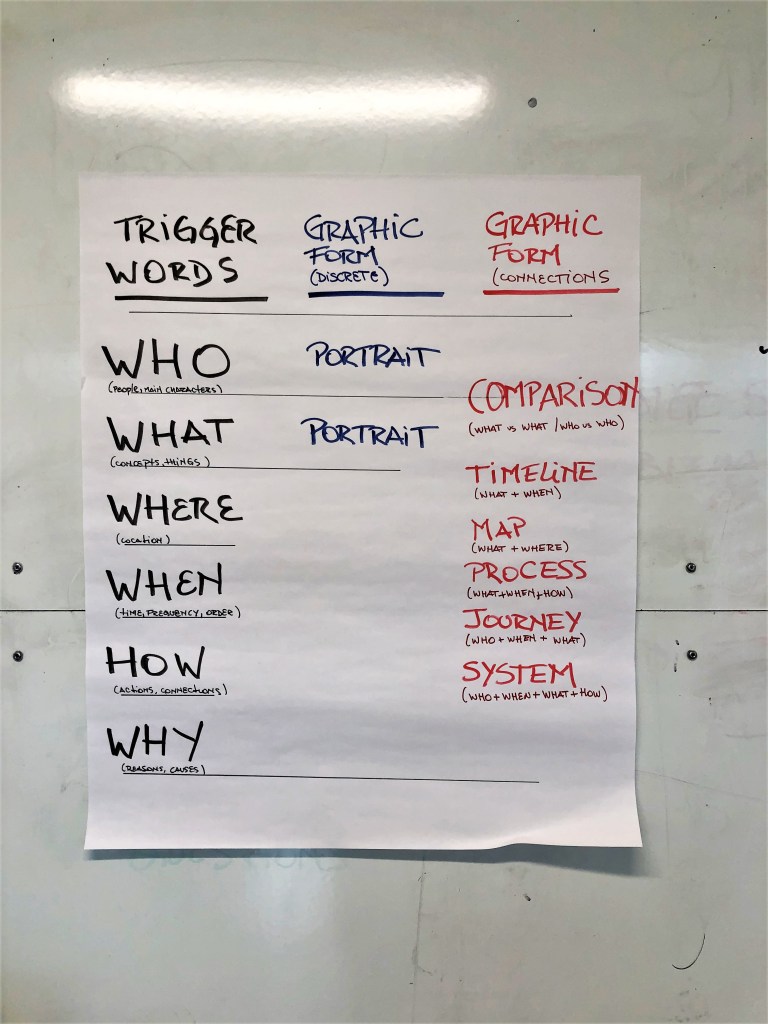 TRiGGER
WORDS
GRAPHiC
FORM
(DISCRETE)
GRAPHiC
FORM
(CONNECTIONS
WHO
(PEOPLE, MAIN CHARACTERS)
PORTRAiT
WHAT
(CONCEPTS, THINGS)
PORTRAiT
WHERE
(LOCATION)
WHEN
(TIME, FREQUENCY, ORDER)
HOW
(ACTIONS, CONNECTIONS)
WHY
(REASONS, CAUSES)
COMPARISON
(WHAT VS WHAT / WHO VS WHO)
TiMELiNE
(WHAT + WHEN)
MAP
(WHAT + WHERE)
PROCESS
(WHAT+WHEN+HOW)
JOURNEY
(WHO + WHEN + WHAT)
SYSTEM
(WHO+WHEN+WHAT+HOW)